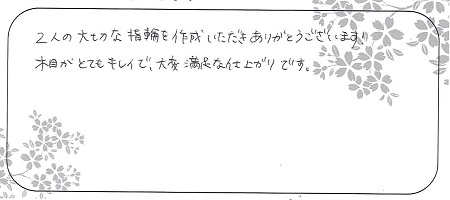 2人の大切な指輪を作成いただきありがとうございます!
木目がとてもキレイで、大変満足な仕上がりです。